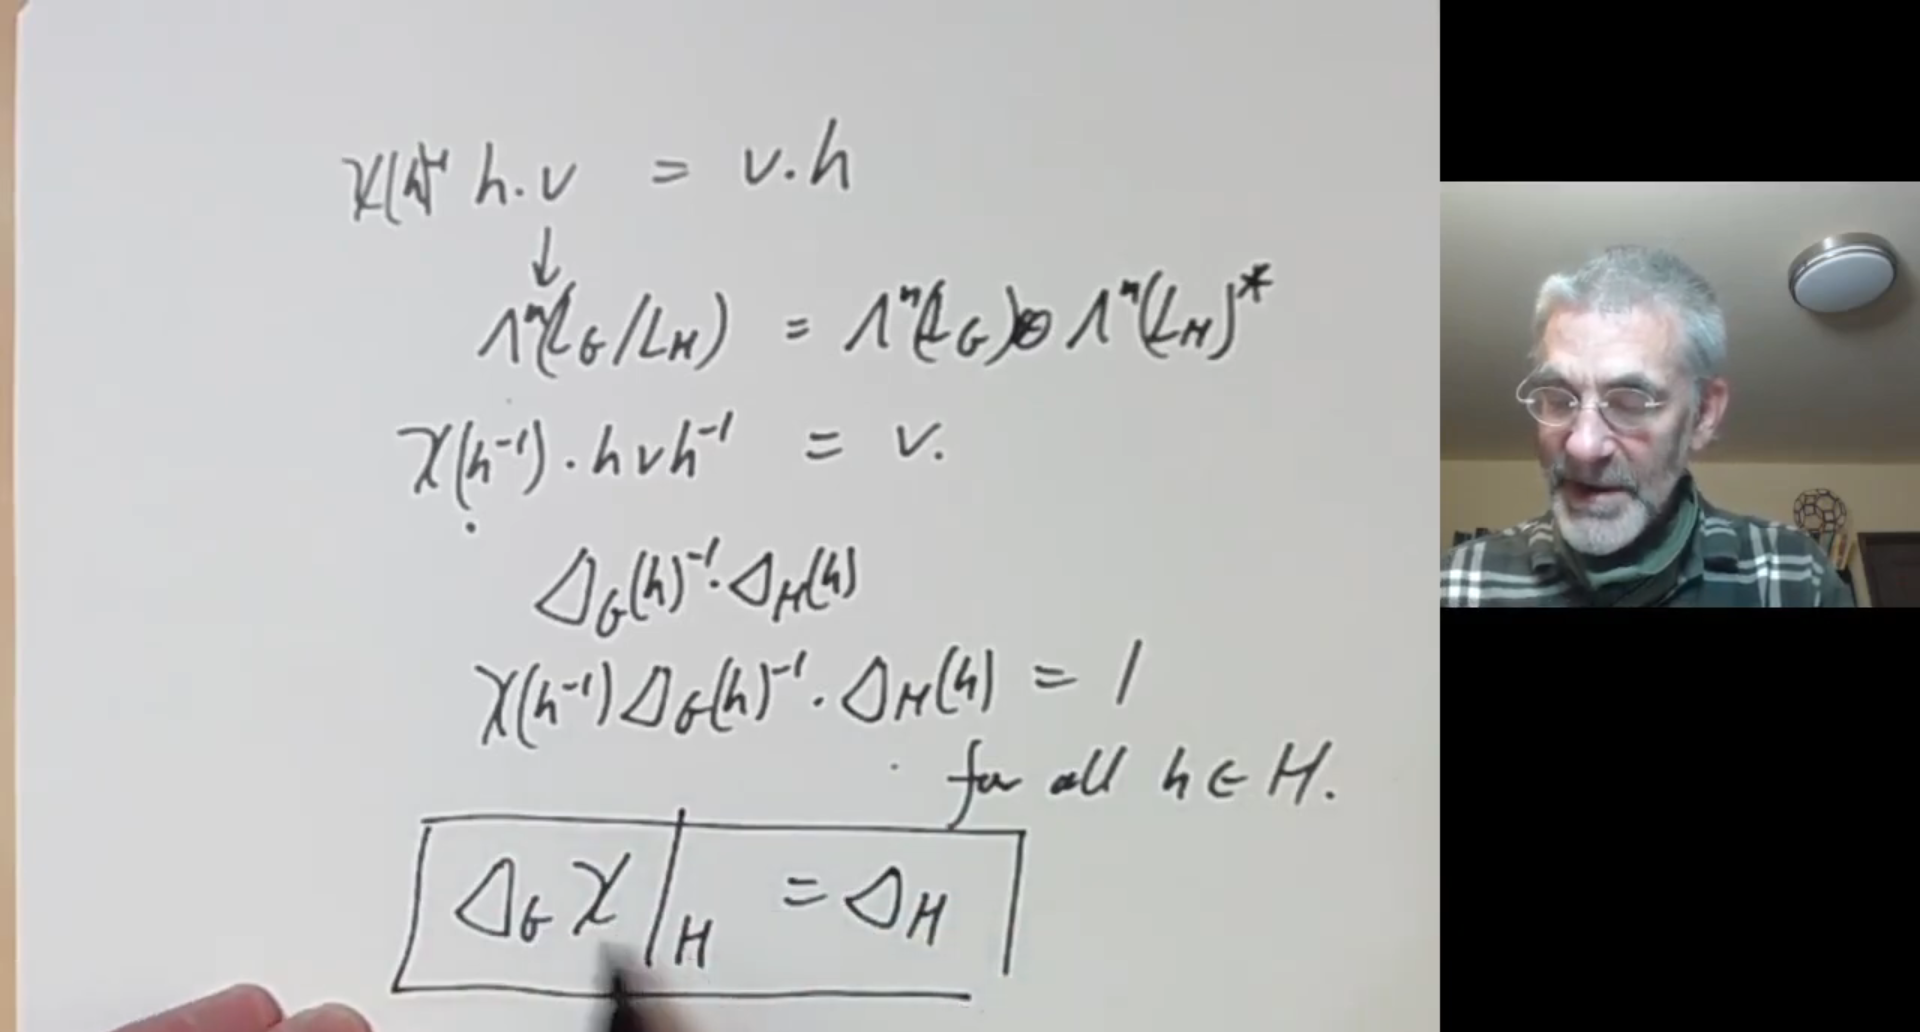 χ(h)⁻¹ h.v = v.h
↓
Λⁿ(L_G/L_H) = Λⁿ(L_G)⊗Λⁿ(L_H)*
χ(h⁻¹).hvh⁻¹ = v.
Δ_G(h)⁻¹.Δ_H(h)
χ(h⁻¹)Δ_G(h)⁻¹.Δ_H(h) = 1
for all h∈H.
Δ_G χ|_H = Δ_H